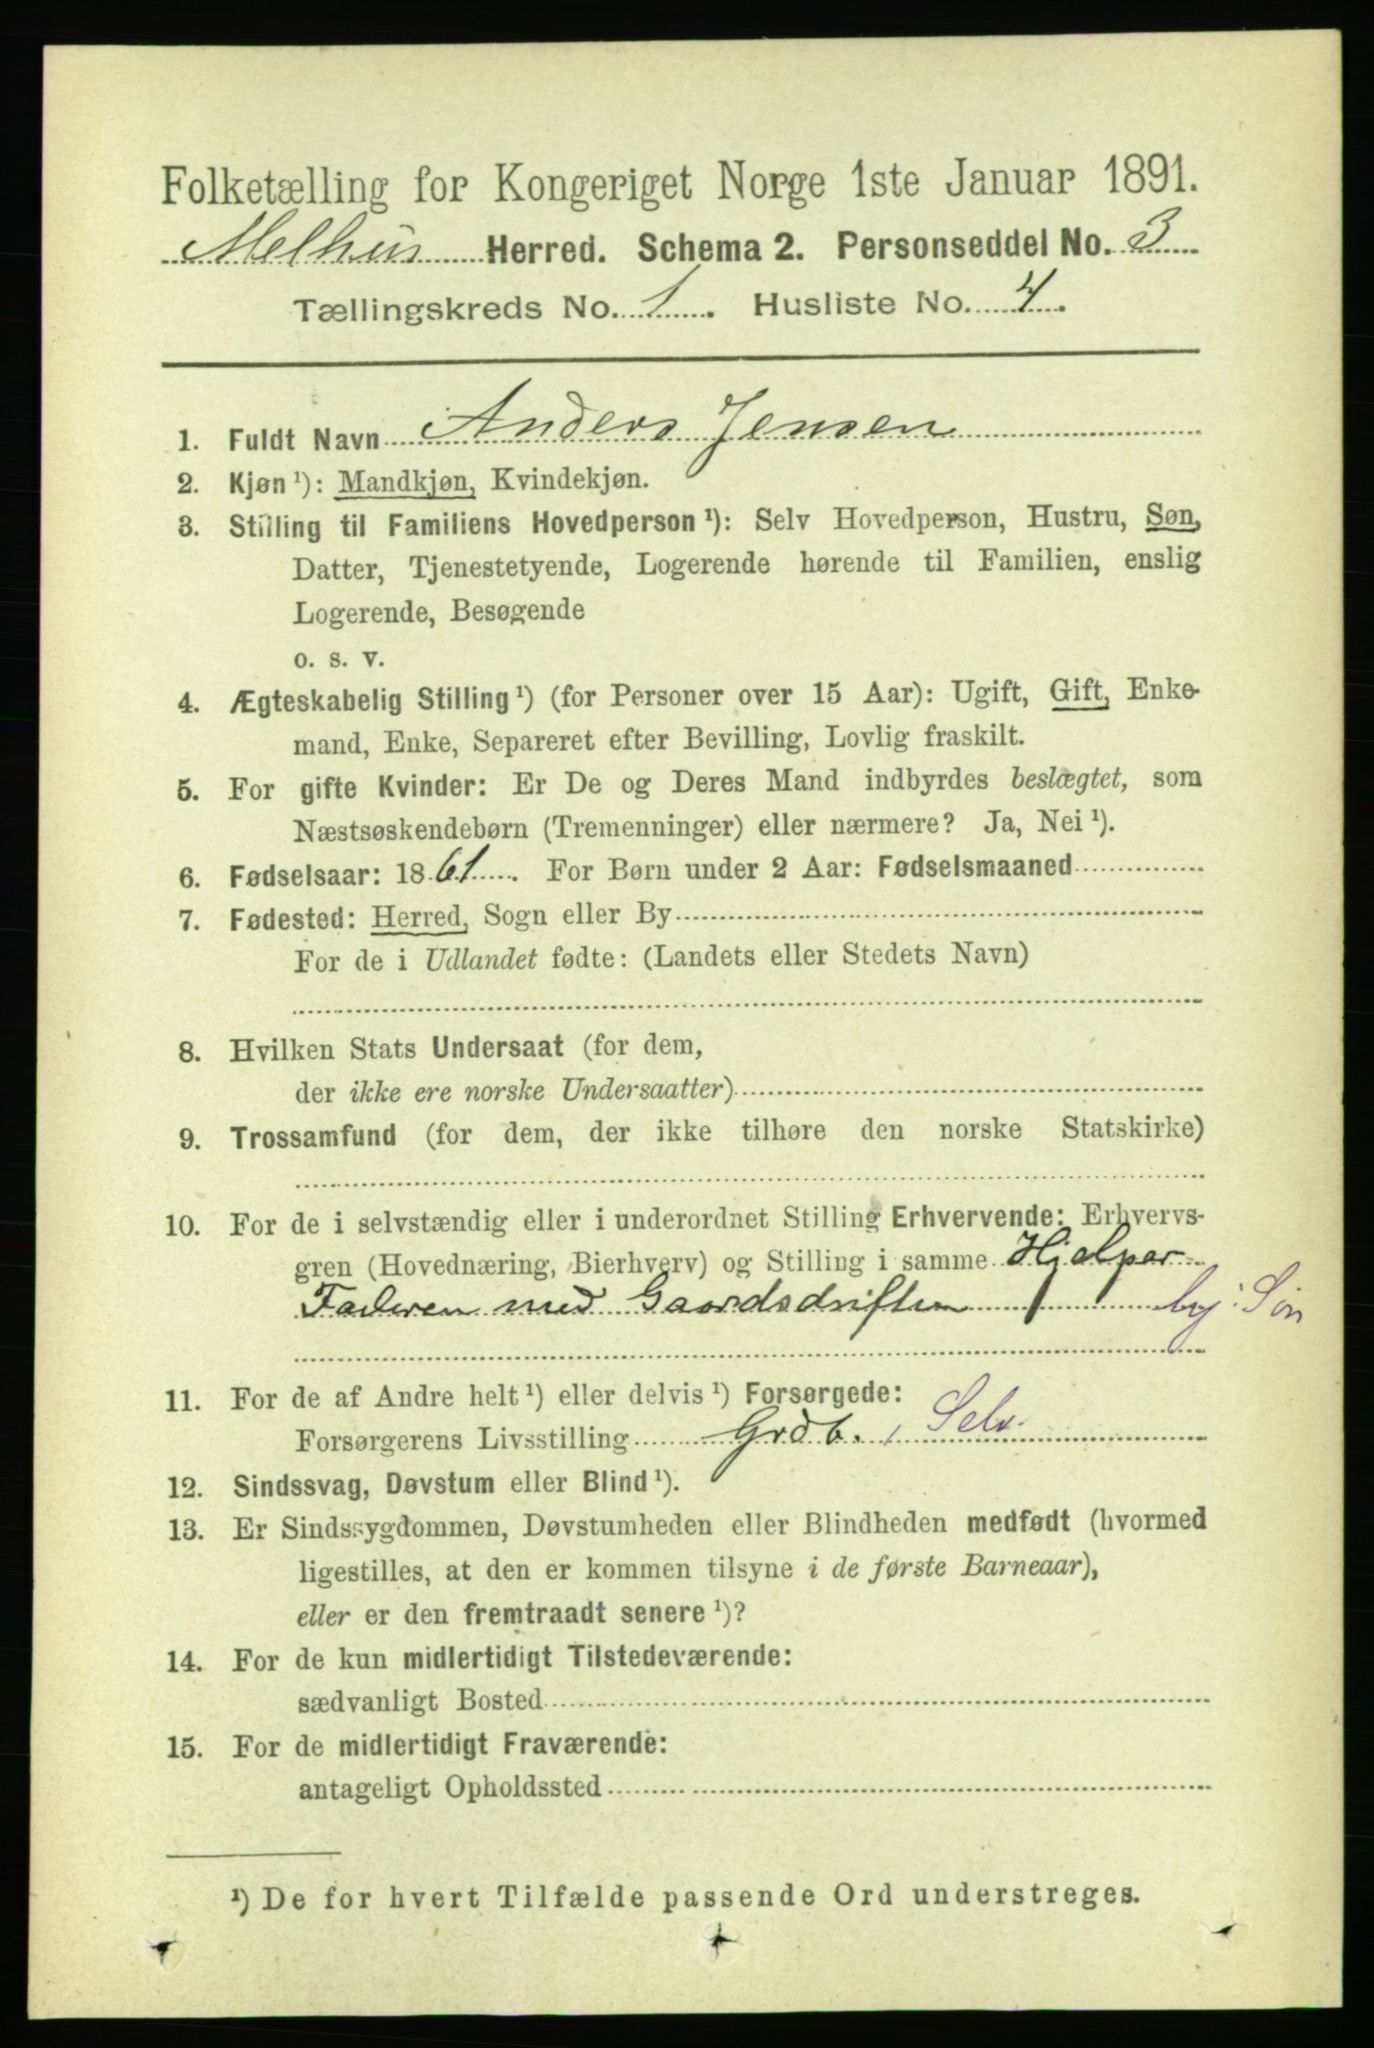 Folketælling for Kongeriget Norge 1ste Januar 1891.
Melhus Herred. Schema 2. Personseddel No. 3
Tællingskreds No. 1. Husliste No. 4.
1. Fuldt Navn Anders Jensen
2. Kjøn ¹): Mandkjøn, Kvindekjøn.
3. Stilling til Familiens Hovedperson ¹): Selv Hovedperson, Hustru, Søn,
Datter, Tjenestetyende, Logerende hørende til Familien, enslig
Logerende, Besøgende
o. s. v.
4. Ægteskabelig Stilling ¹) (for Personer over 15 Aar): Ugift, Gift, Enke-
mand, Enke, Separeret efter Bevilling, Lovlig fraskilt.
5. For gifte Kvinder: Er De og Deres Mand indbyrdes beslægtet, som
Næstsøskendebørn (Tremenninger) eller nærmere? Ja, Nei ¹).
6. Fødselsaar: 1861. For Børn under 2 Aar: Fødselsmaaned
7. Fødested: Herred, Sogn eller By
For de i Udlandet fødte: (Landets eller Stedets Navn)
8. Hvilken Stats Undersaat (for dem,
der ikke ere norske Undersaatter)
9. Trossamfund (for dem, der ikke tilhøre den norske Statskirke)
10. For de i selvstændig eller i underordnet Stilling Erhvervende: Erhvervs-
gren (Hovednæring, Bierhverv) og Stilling i samme Hjelper
Faderen med Gaardsdriften
11. For de af Andre helt ¹) eller delvis ¹) Forsørgede:
Forsørgerens Livsstilling Grdb. Selv
12. Sindssvag, Døvstum eller Blind ¹).
13. Er Sindssygdommen, Døvstumheden eller Blindheden medfødt (hvormed
ligestilles, at den er kommen tilsyne i de første Barneaar),
eller er den fremtraadt senere ¹)?
14. For de kun midlertidigt Tilstedeværende:
sædvanligt Bosted
15. For de midlertidigt Fraværende:
antageligt Opholdssted
¹) De for hvert Tilfælde passende Ord understreges.